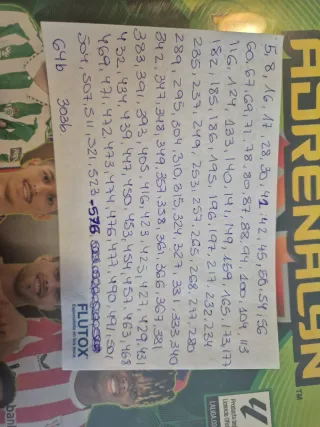 ADRENALYN
TM
5, 8, 16, 17, 28, 30, 41, 42, 45, 50, 54, 56
60, 67, 68, 71, 78, 80, 87, 88, 94, 100, 104, 113
116, 124, 133, 140, 141, 149, 156, 165, 173, 177
182, 185, 186, 195, 196, 197, 217, 232, 234
235, 237, 249, 253, 257, 265, 268, 277, 280
289, 295, 304, 310, 315, 324, 327, 331, 333, 340
342, 347, 348, 349, 357, 358, 361, 365, 367, 381
383, 391, 393, 405, 416, 423, 425, 427, 429, 431
432, 434, 439, 447, 450, 453, 454, 457, 463, 468
469, 471, 472, 473, 474, 476, 477, 490, 491, 501
504, 507, 511, 521, 523 - 576
FLUTOX